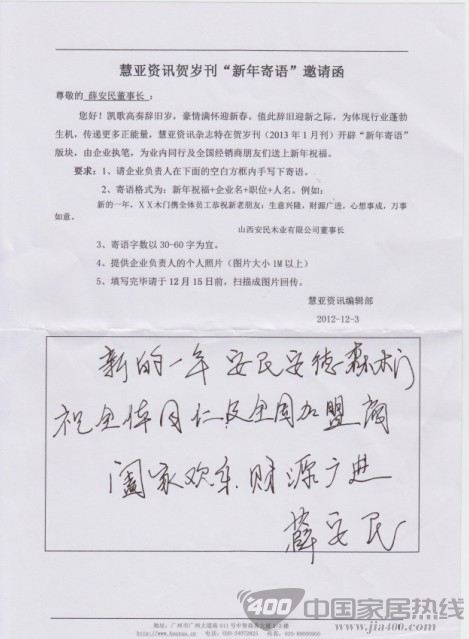 慧亚资讯贺岁刊“新年寄语”邀请函
尊敬的 薛安民董事长：
您好！凯歌高奏辞旧岁，豪情满怀迎新春。值此辞旧迎新之际，为体现行业蓬勃
生机，传递更多正能量，慧亚资讯杂志特在贺岁刊（2013年1月刊）开辟“新年寄语”
版块，由企业执笔，为业内同行及全国经销商朋友们送上新年祝福。
要求：1、请企业负责人在下面的空白方框内手写下寄语。
2、寄语格式为：新年祝福+企业名+职位+人名。例如：
新的一年，XX木门携全体员工恭祝新老朋友：生意兴隆，财源广进，心想事成，万事
如意。
山西安民木业有限公司董事长
3、寄语字数以30-60字为宜。
4、提供企业负责人的个人照片（图片大小1M以上）
5、填写完毕请于12月15日前，扫描成图片回传。
慧亚资讯编辑部
2012-12-3
新的一年 安民安德森木门
祝全体同仁及全国加盟商
阖家欢乐 财源广进
薛安民
400 中国家居热线
www.jia400.com